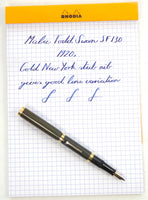 RHODIA
Mabie Todd Swan SF 130
1920.
Gold New York steel nib
gives good line variation
f f f